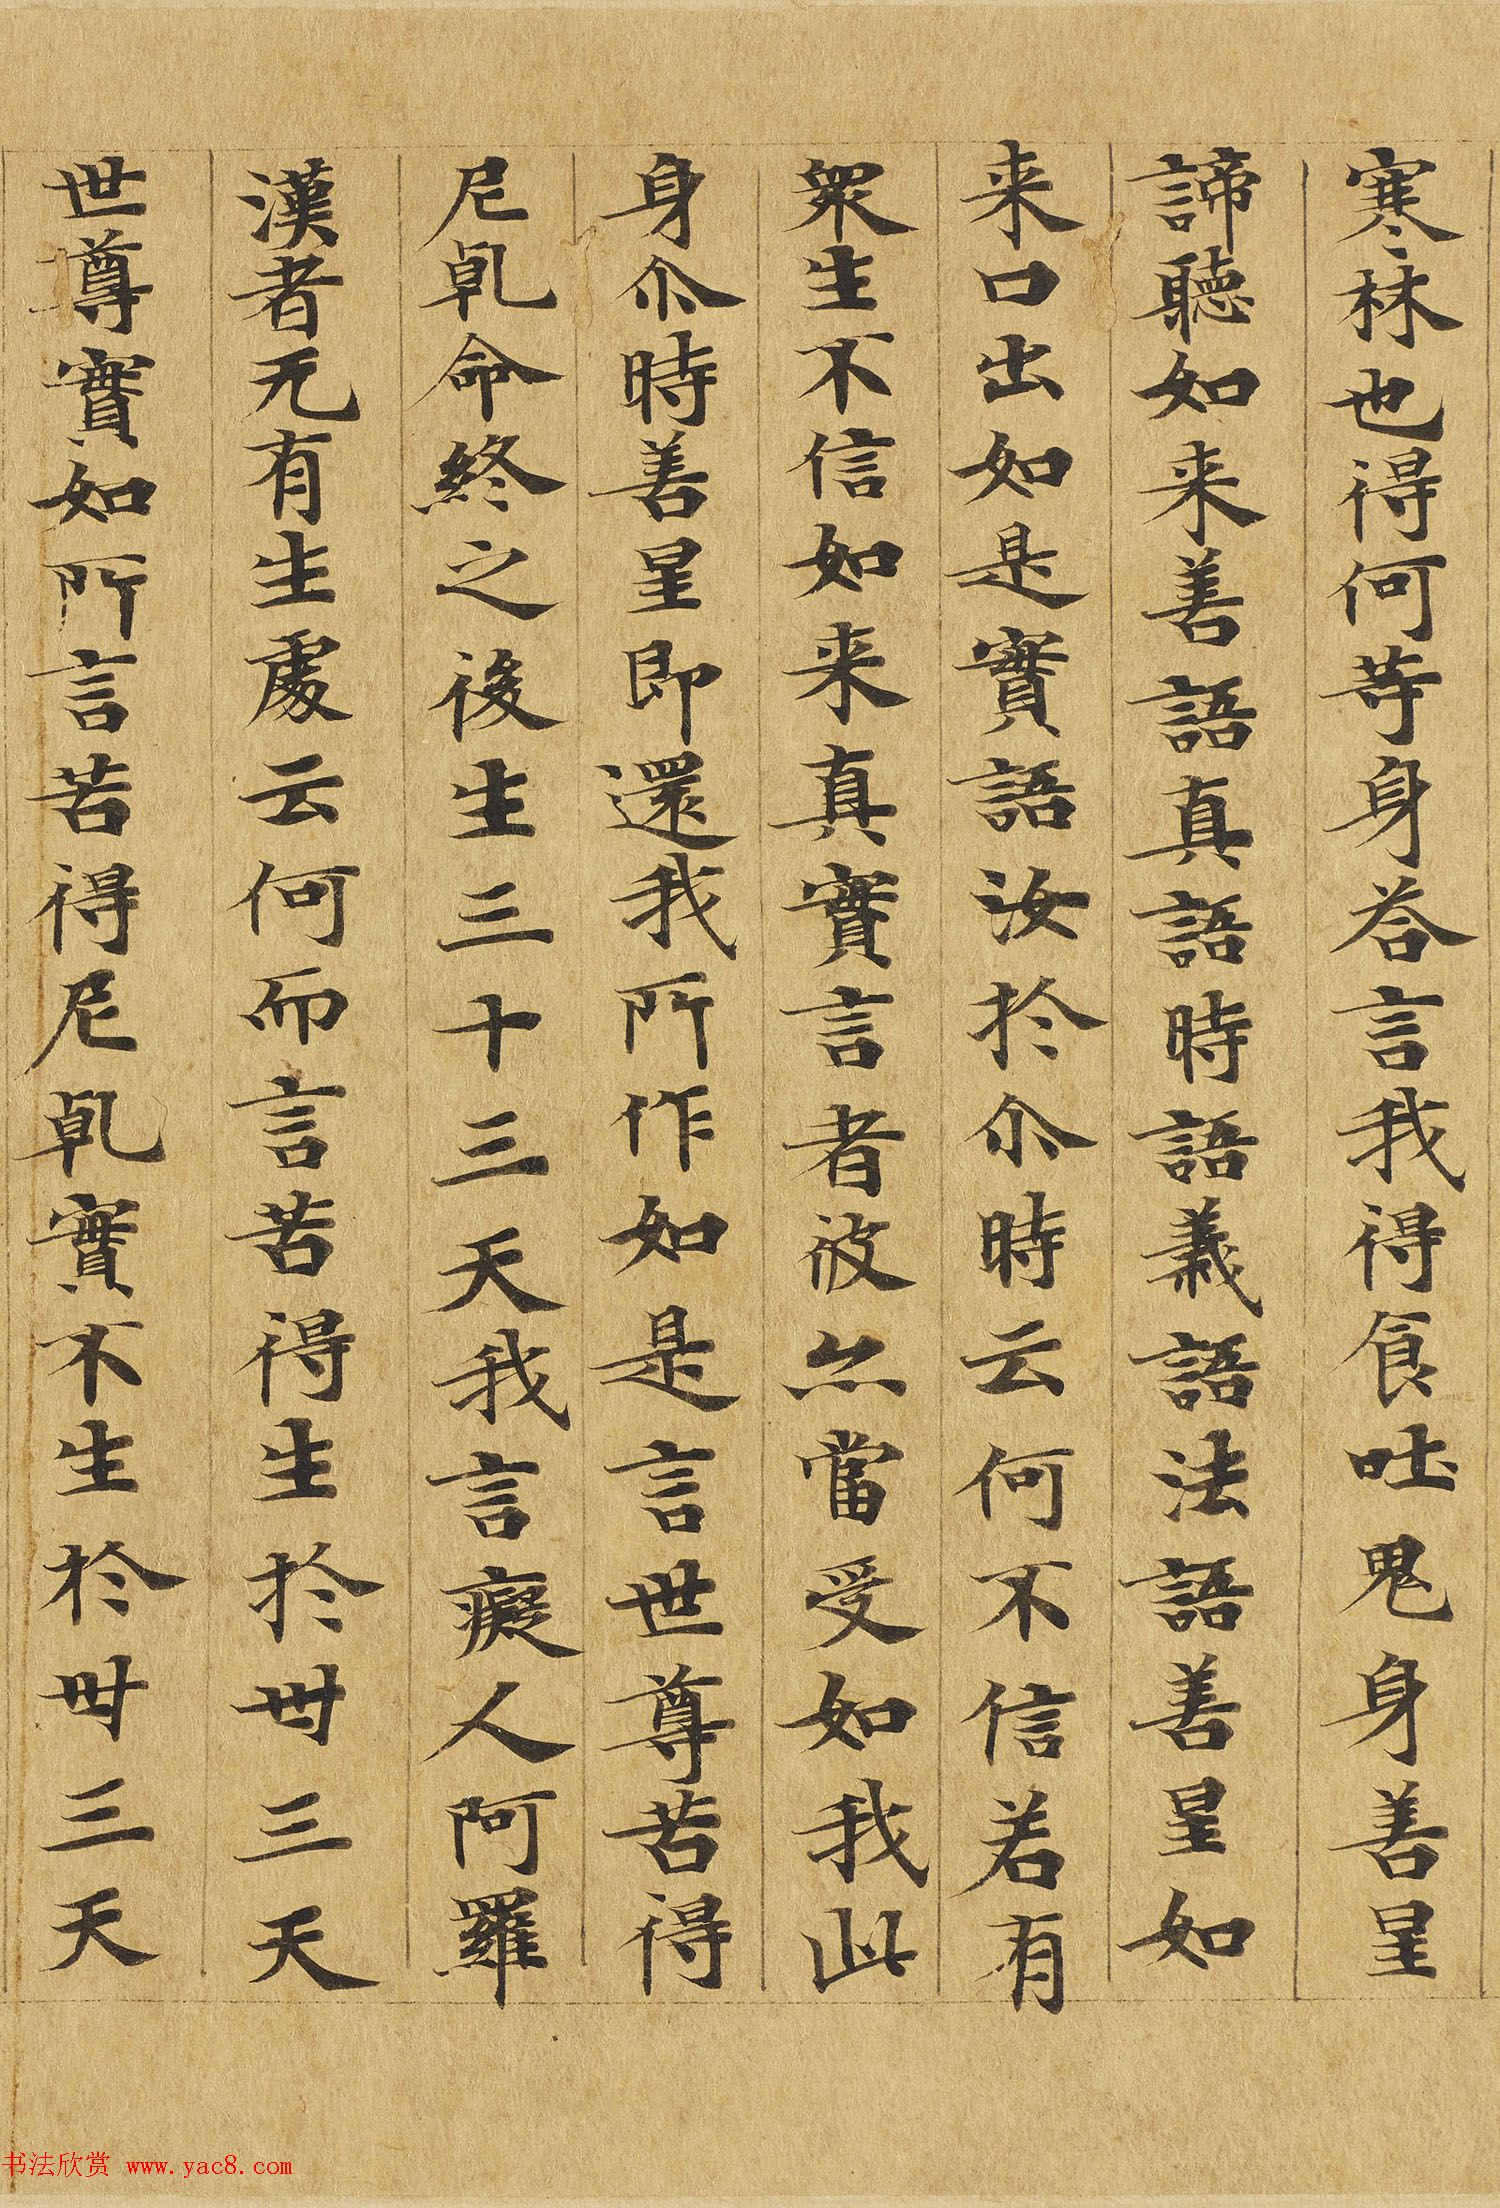 寒林也得何等身荅言我得食吐鬼身善星
諦聽如来善語真語時語義語法語善星如
来口出如是實語汝於尒時云何不信若有
衆生不信如来真實言者彼亦當受如我此
身尒時善星即還我所作如是言世尊苦得
尼乹命終之後生三十三天我言癡人阿羅
漢者无有生處云何而言苦得生於卅三天
世尊實如所言苦得尼乹實不生於卅三天
书法欣赏 www.yac8.com